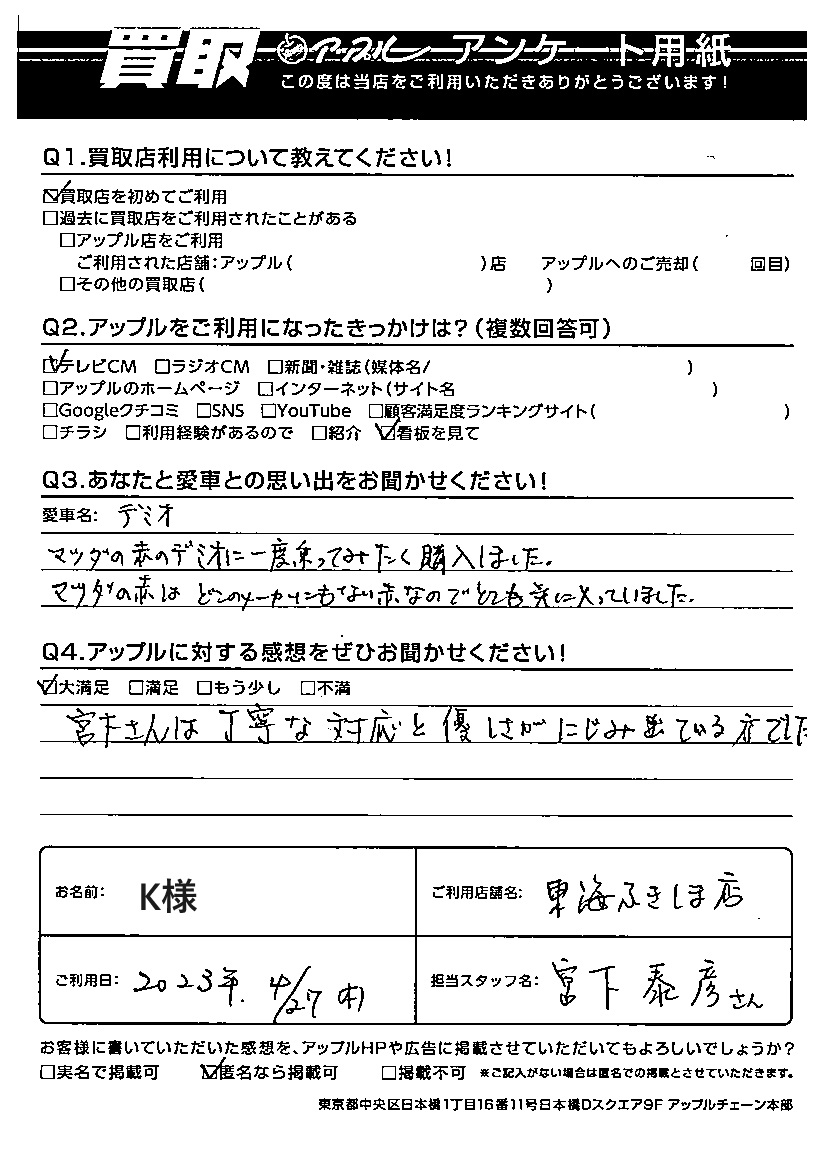 買取 アップル アンケート用紙
この度は当店をご利用いただきありがとうございます!
Q1.買取店利用について教えてください!
☑買取店を初めてご利用
□過去に買取店をご利用されたことがある
□アップル店をご利用
ご利用された店舗:アップル( )店 アップルへのご売却( 回目)
□その他の買取店( )
Q2.アップルをご利用になったきっかけは?(複数回答可)
☑テレビCM □ラジオCM □新聞・雑誌(媒体名/ )
□アップルのホームページ □インターネット(サイト名 )
□Googleクチコミ □SNS □YouTube □顧客満足度ランキングサイト( )
□チラシ □利用経験があるので □紹介 ☑看板を見て
Q3.あなたと愛車との思い出をお聞かせください!
愛車名: デミオ
マツダの赤のデミオに一度乗ってみたく購入しました。
マツダの赤は どこのメーカーにもない赤なのでとても気に入っていました。
Q4.アップルに対する感想をぜひお聞かせください!
☑大満足 □満足 □もう少し □不満
宮下さんは 丁寧な 対応と 優しさが にじみ出ている方でした
お名前: K様 ご利用店舗名: 東海ふきしま店
ご利用日: 2023年. 4/27(木) 担当スタッフ名: 宮下 泰彦さん
お客様に書いていただいた感想を、アップルHPや広告に掲載させていただいてもよろしいでしょうか?
□実名で掲載可 ☑匿名なら掲載可 □掲載不可 ※ご記入がない場合は匿名での掲載とさせていただきます。
東京都中央区日本橋1丁目16番11号日本橋Dスクエア9F アップルチェーン本部